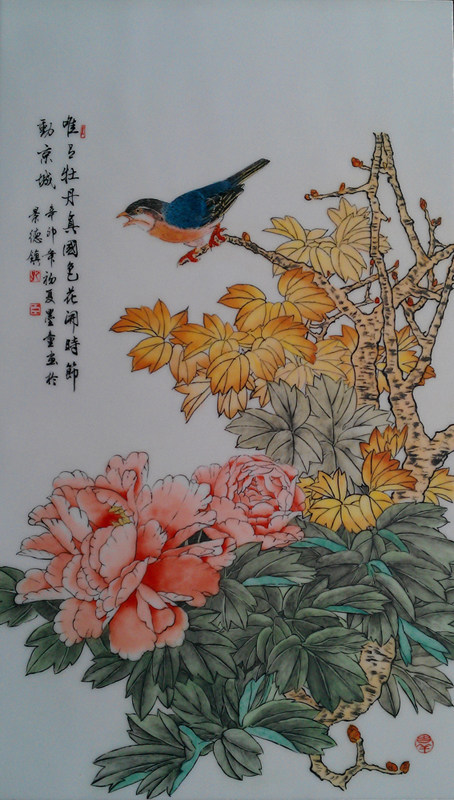 唯有牡丹真國色花開時節
動京城
辛卯年初夏墨童画於
景德鎮